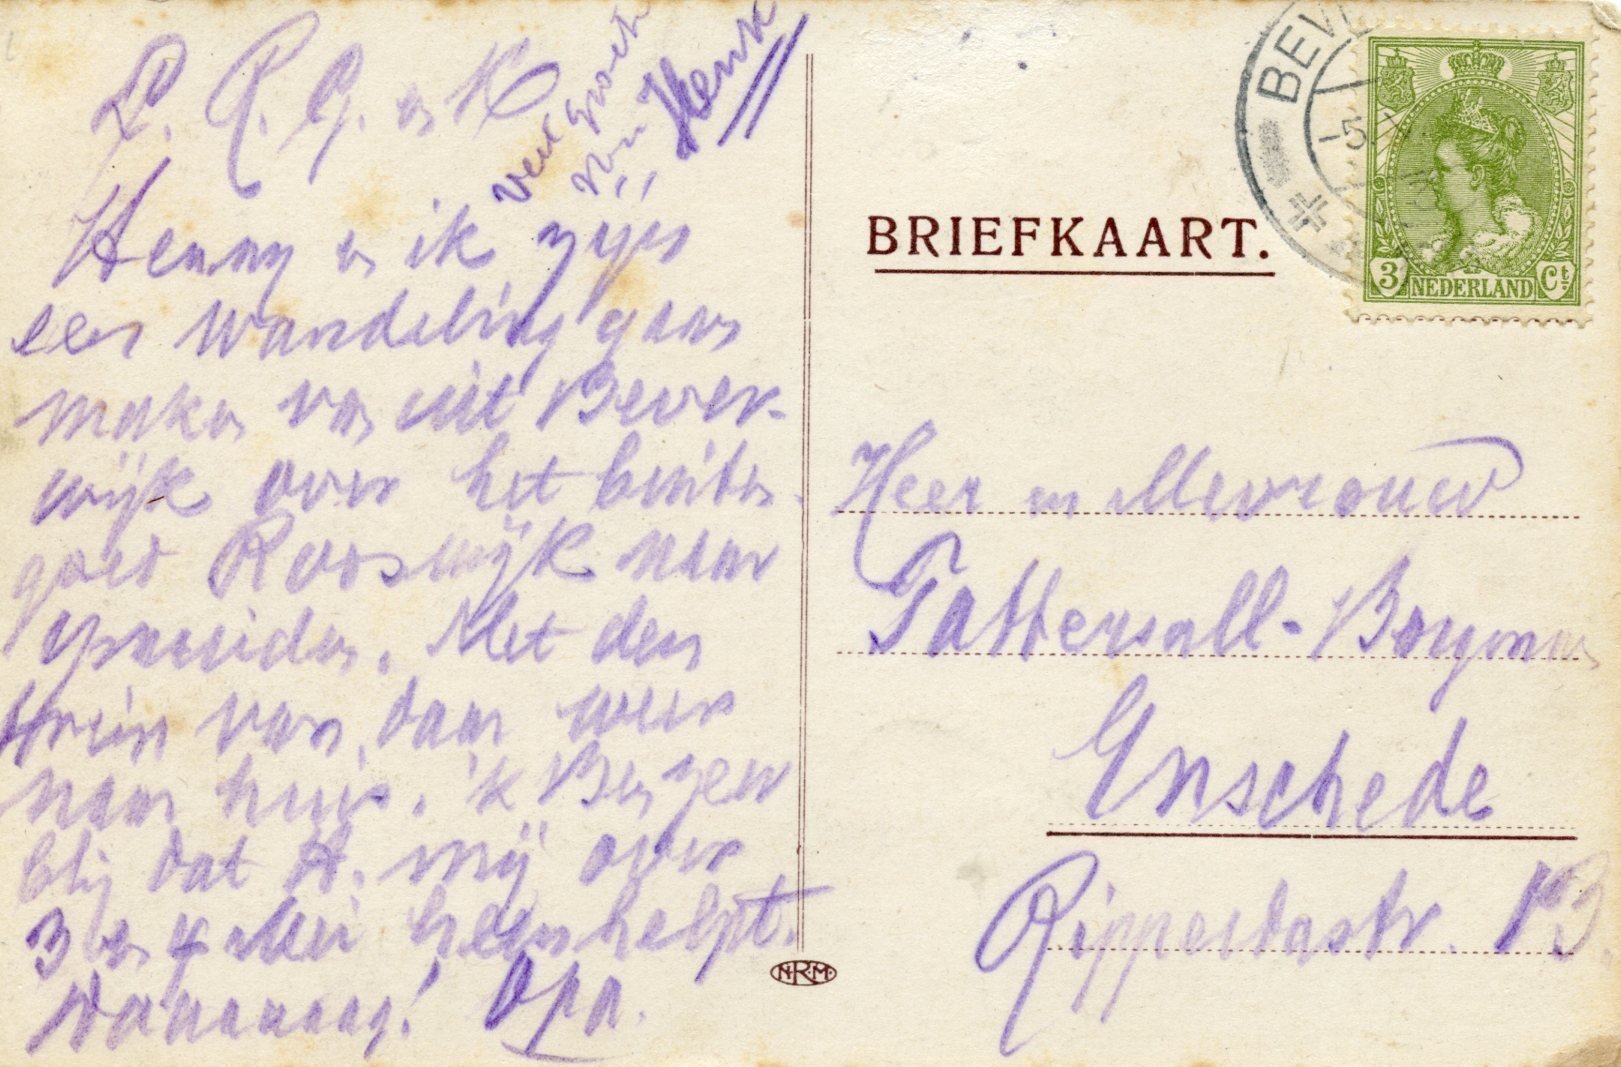 L. R. G. en H
veel groeten
van Henk
Henny en ik zijn
een wandeling gaan
maken van uit Bever-
wijk over het buiten-
goed Rooswijk naar
IJmuiden. Met den
trein van daar weer
naar huis. ik Ben zeer
blij dat H. mij over
3 en 4 Mei heen helpt.
Daaaaaag! Opa.
BEV
-5.
BRIEFKAART.
3 NEDERLAND Ct
Heer en Mevrouw
Tattersall-
Enschede
Ripperdastr. 13
N.R.M.